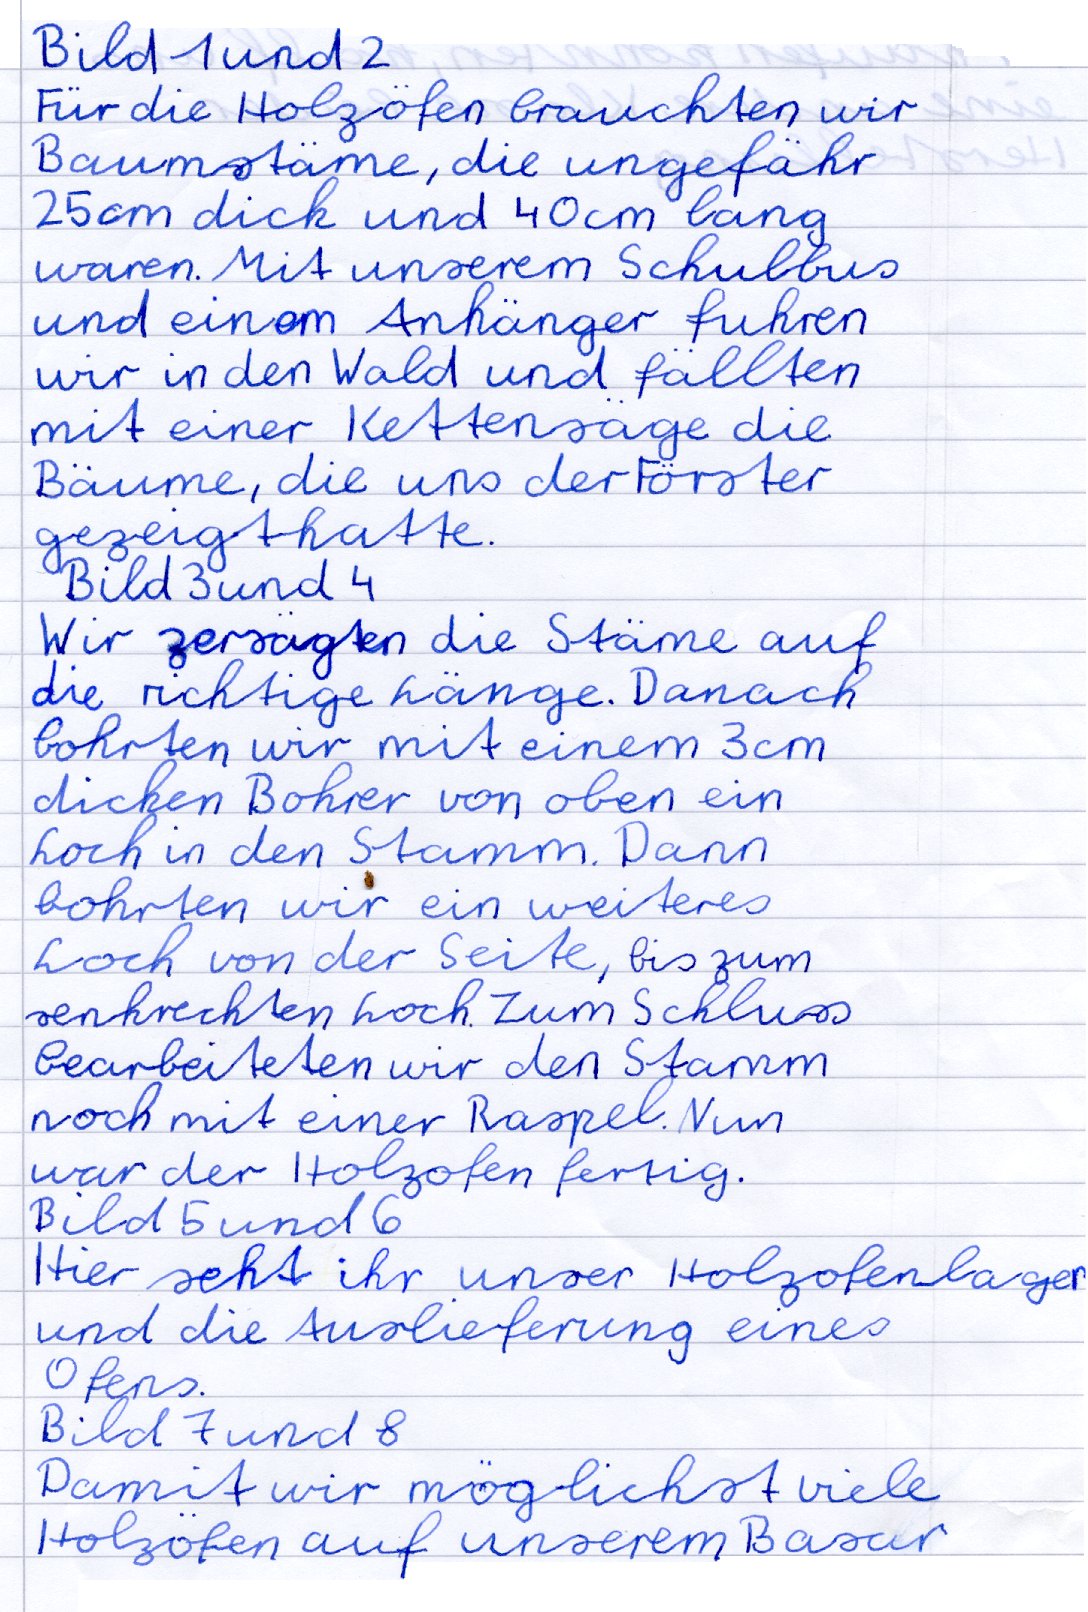 Bild 1 und 2
Für die Holzöfen brauchten wir
Baumstäme, die ungefähr
25cm dick und 40cm lang
waren. Mit unserem Schulbus
und einem Anhänger fuhren
wir in den Wald und fällten
mit einer Kettensäge die
Bäume, die uns der Förster
gezeigt hatte.
Bild 3 und 4
Wir zersägten die Stäme auf
die richtige Länge. Danach
bohrten wir mit einem 3cm
dicken Bohrer von oben ein
Loch in den Stamm. Dann
bohrten wir ein weiteres
Loch von der Seite, bis zum
senkrechten Loch. Zum Schluss
bearbeiteten wir den Stamm
noch mit einer Raspel. Nun
war der Holzofen fertig.
Bild 5 und 6
Hier seht ihr unser Holzofenlager
und die Auslieferung eines
Ofens.
Bild 7 und 8
Damit wir möglichst viele
Holzöfen auf unserem Basar